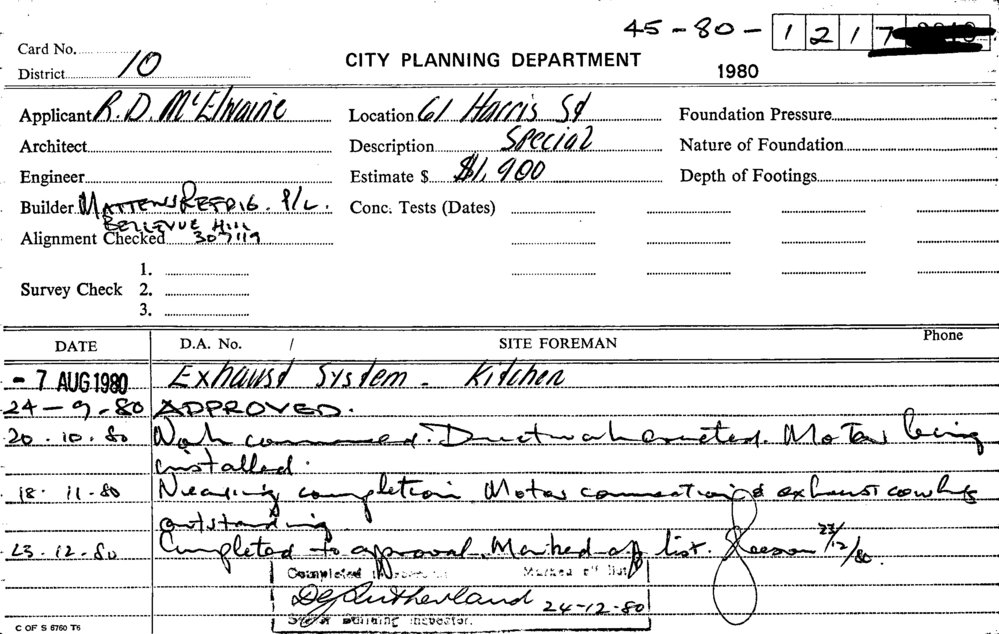 45-80-1217
Card No.
District 10
CITY PLANNING DEPARTMENT
1980
Applicant R. D. McElwaine
Location 61 Harris St
Foundation Pressure
Architect
Description Special
Nature of Foundation
Engineer
Estimate $ $1,900
Depth of Footings
Builder Mattens Refrig. P/L.
Conc. Tests (Dates)
Bellevue Hill
Alignment Checked 307119
1.
Survey Check 2.
3.
DATE D.A. No. / SITE FOREMAN Phone
- 7 AUG 1980 Exhaust System - Kitchen
24-9-80 APPROVED.
20.10.80 Work commenced. Ductwork erected. Motor being
installed.
18.11.80 Nearing completion Motor connection & exhaust cowling
outstanding
23.12.80 Completed to approval. Marked off list. 23/12/80.
Completed Marked off list
D Sutherland 24-12-80
Building Inspector.
C OF S 6760 T6